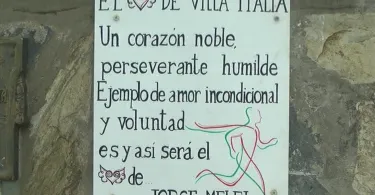 EL DE VILLA ITALIA
Un corazón noble,
perseverante humilde
Ejemplo de amor incondicional
y voluntad
es y asi será el
de...
JORGE